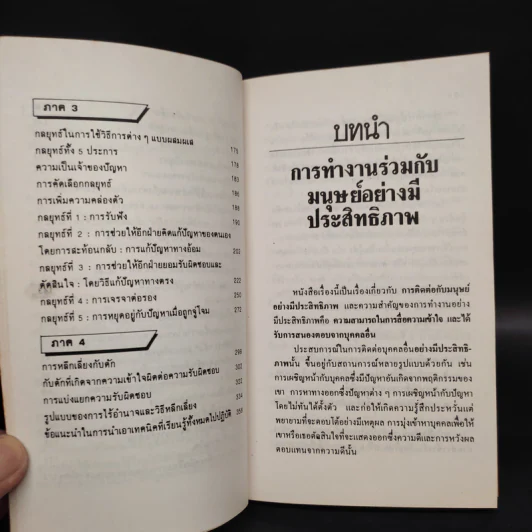 ภาค 3
กลยุทธ์ในการใช้วิธีการต่าง ๆ แบบผสมผสาน
กลยุทธ์ทั้ง 5 ประการ 175
ความเป็นเจ้าของปัญหา 178
การคัดเลือกกลยุทธ์ 183
การเพิ่มความคล่องตัว 186
กลยุทธ์ที่ 1 : การรับฟัง 190
กลยุทธ์ที่ 2 : การช่วยให้อีกฝ่ายคิดแก้ปัญหาของตนเอง
โดยการสะท้อนกลับ : การแก้ปัญหาทางอ้อม 203
กลยุทธ์ที่ 3 : การช่วยให้อีกฝ่ายยอมรับผิดชอบและ
ตัดสินใจ : โดยวิธีแก้ปัญหาทางตรง 222
กลยุทธ์ที่ 4 : การเจรจาต่อรอง 250
กลยุทธ์ที่ 5 : การหยุดอยู่กับปัญหาเมื่อถูกจู่โจม 272
ภาค 4
การหลีกเลี่ยงกับดัก 298
กับดักที่เกิดจากความเข้าใจผิดต่อความรับผิดชอบ 302
การแบ่งแยกความรับผิดชอบ
รูปแบบของการไร้อำนาจและวิธีหลีกเลี่ยง 334
ข้อแนะนำในการนำเอาเทคนิคที่เรียนรู้ทั้งหมดไปปฏิบัติ
บทนำ
การทำงานร่วมกับ
มนุษย์อย่างมี
ประสิทธิภาพ
หนังสือเรื่องนี้เป็นเรื่องเกี่ยวกับ การติดต่อกับมนุษย์
อย่างมีประสิทธิภาพ และความสำคัญของการทำงานอย่าง
มีประสิทธิภาพคือ ความสามารถในการสื่อความเข้าใจ และได้
รับการสนองตอบจากบุคคลอื่น
ประสบการณ์ในการติดต่อบุคคลอื่นอย่างมีประสิทธิ-
ภาพนั้น ขึ้นอยู่กับสถานการณ์หลายรูปแบบด้วยกัน เช่น
การเผชิญหน้ากับบุคคลซึ่งมีปัญหาอันเกิดจากพฤติกรรมของ
เขา การหาทางออกซึ่งปัญหาต่าง ๆ การเผชิญหน้ากับปัญหา
โดยไม่ทันได้ตั้งตัว และก่อให้เกิดความรู้สึกประหวั่นแต่
พยายามที่จะตอบโต้อย่างมีเหตุผล การมุ่งเข้าหาบุคคลเพื่อให้
เขาหรือเธอตัดสินใจที่จะแสดงออกซึ่งความดีและการหวังผล
ตอบแทนจากความดีนั้น